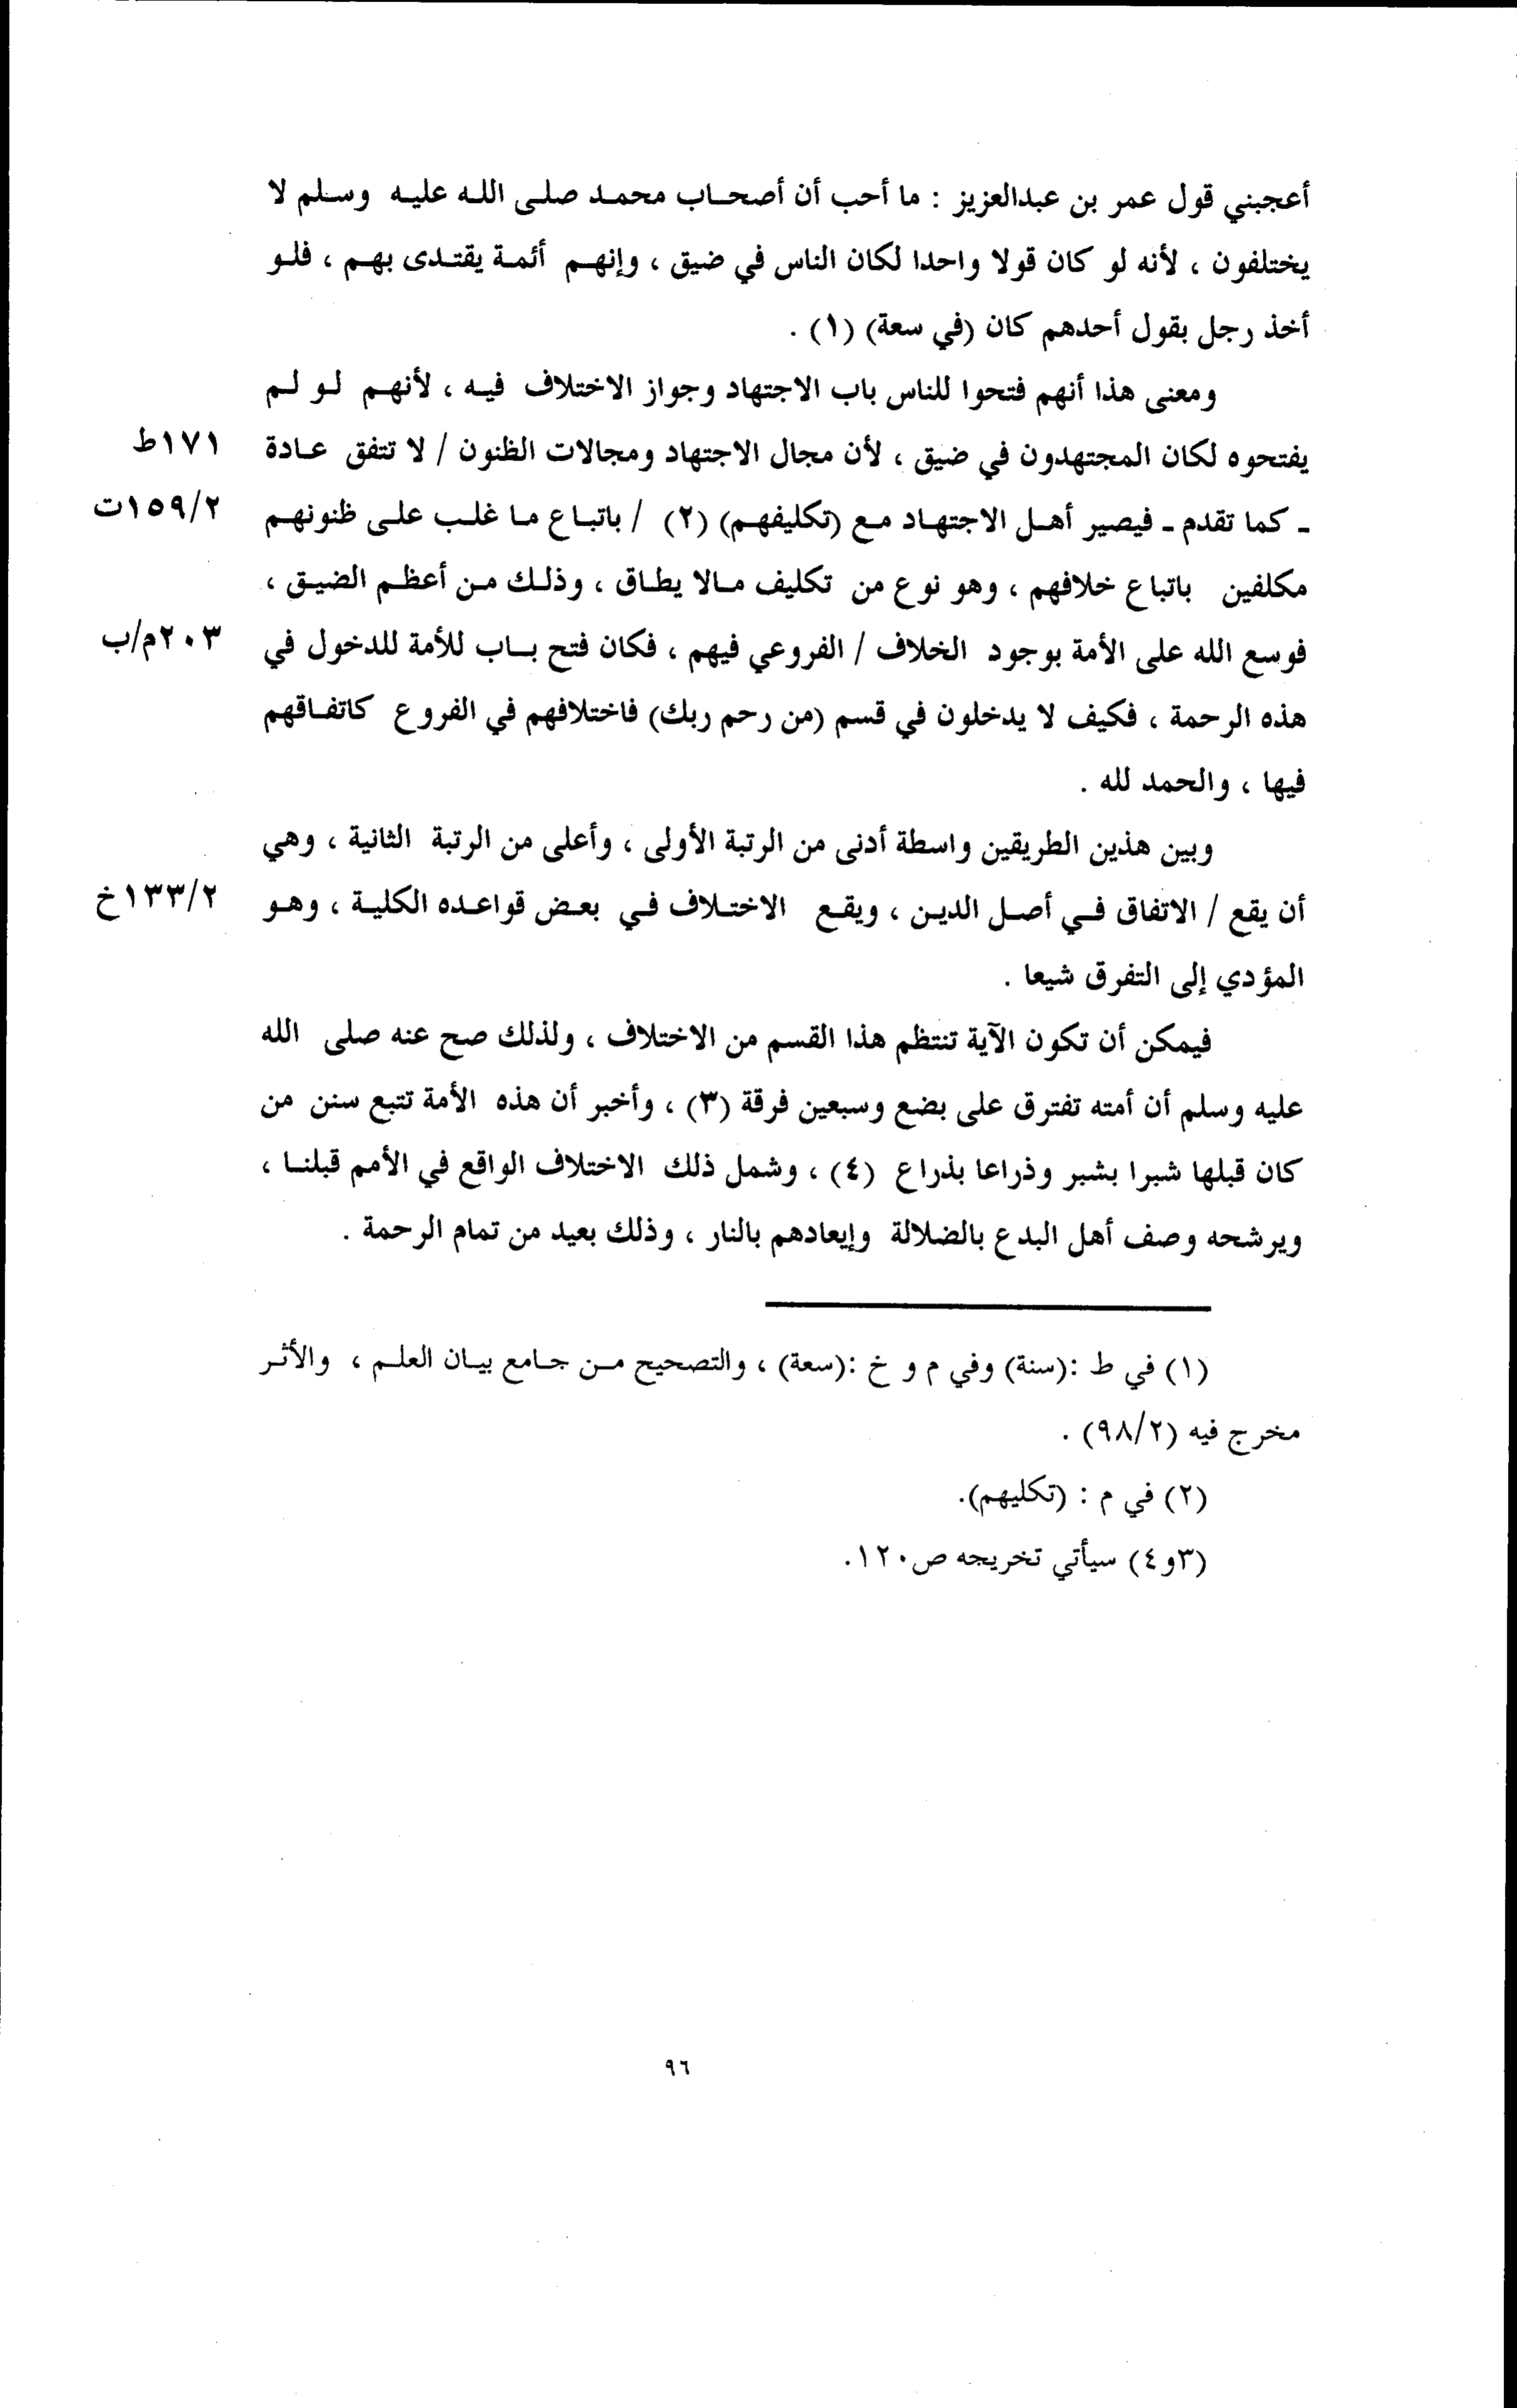 أعجبني قول عمر بن عبدالعزيز : ما أحب أن أصحاب محمد صلى الله عليه وسلم لا
يختلفون ، لأنه لو كان قولا واحدا لكان الناس في ضيق ، وإنهم أئمة يقتدى بهم ، فلو
أخذ رجل بقول أحدهم كان (في سعة) (١) .
ومعنى هذا أنهم فتحوا للناس باب الاجتهاد وجواز الاختلاف فيه ، لأنهم لو لم
يفتحوه لكان المجتهدون في ضيق ، لأن مجال الاجتهاد ومجالات الظنون / لا تتفق عادة ١٧١ط
ـ كما تقدم ـ فيصير أهل الاجتهاد مع (تكليفهم) (٢) / باتباع ما غلب على ظنونهم ١٥٩/٢ت
مكلفين باتباع خلافهم ، وهو نوع من تكليف مالا يطاق ، وذلك من أعظم الضيق ،
فوسع الله على الأمة بوجود الخلاف / الفروعي فيهم ، فكان فتح باب للأمة للدخول في ٢٠٣م/ب
هذه الرحمة ، فكيف لا يدخلون في قسم (من رحم ربك) فاختلافهم في الفروع كاتفاقهم
فيها ، والحمد لله .
وبين هذين الطريقين واسطة أدنى من الرتبة الأولى ، وأعلى من الرتبة الثانية ، وهي
أن يقع / الاتفاق في أصل الدين ، ويقع الاختلاف في بعض قواعده الكلية ، وهو ١٣٣/٢خ
المؤدي إلى التفرق شيعا .
فيمكن أن تكون الآية تنتظم هذا القسم من الاختلاف ، ولذلك صح عنه صلى الله
عليه وسلم أن أمته تفترق على بضع وسبعين فرقة (٣) ، وأخبر أن هذه الأمة تتبع سنن من
كان قبلها شبرا بشبر وذراعا بذراع (٤) ، وشمل ذلك الاختلاف الواقع في الأمم قبلنا ،
ويرشحه وصف أهل البدع بالضلالة وإيعادهم بالنار ، وذلك بعيد من تمام الرحمة .
(١) في ط :(سنة) وفي م و خ :(سعة) ، والتصحيح من جامع بيان العلم ، والأثر
مخرج فيه (٩٨/٢) .
(٢) في م : (تكليهم).
(٣و٤) سيأتي تخريجه ص١٢٠.
٩٦